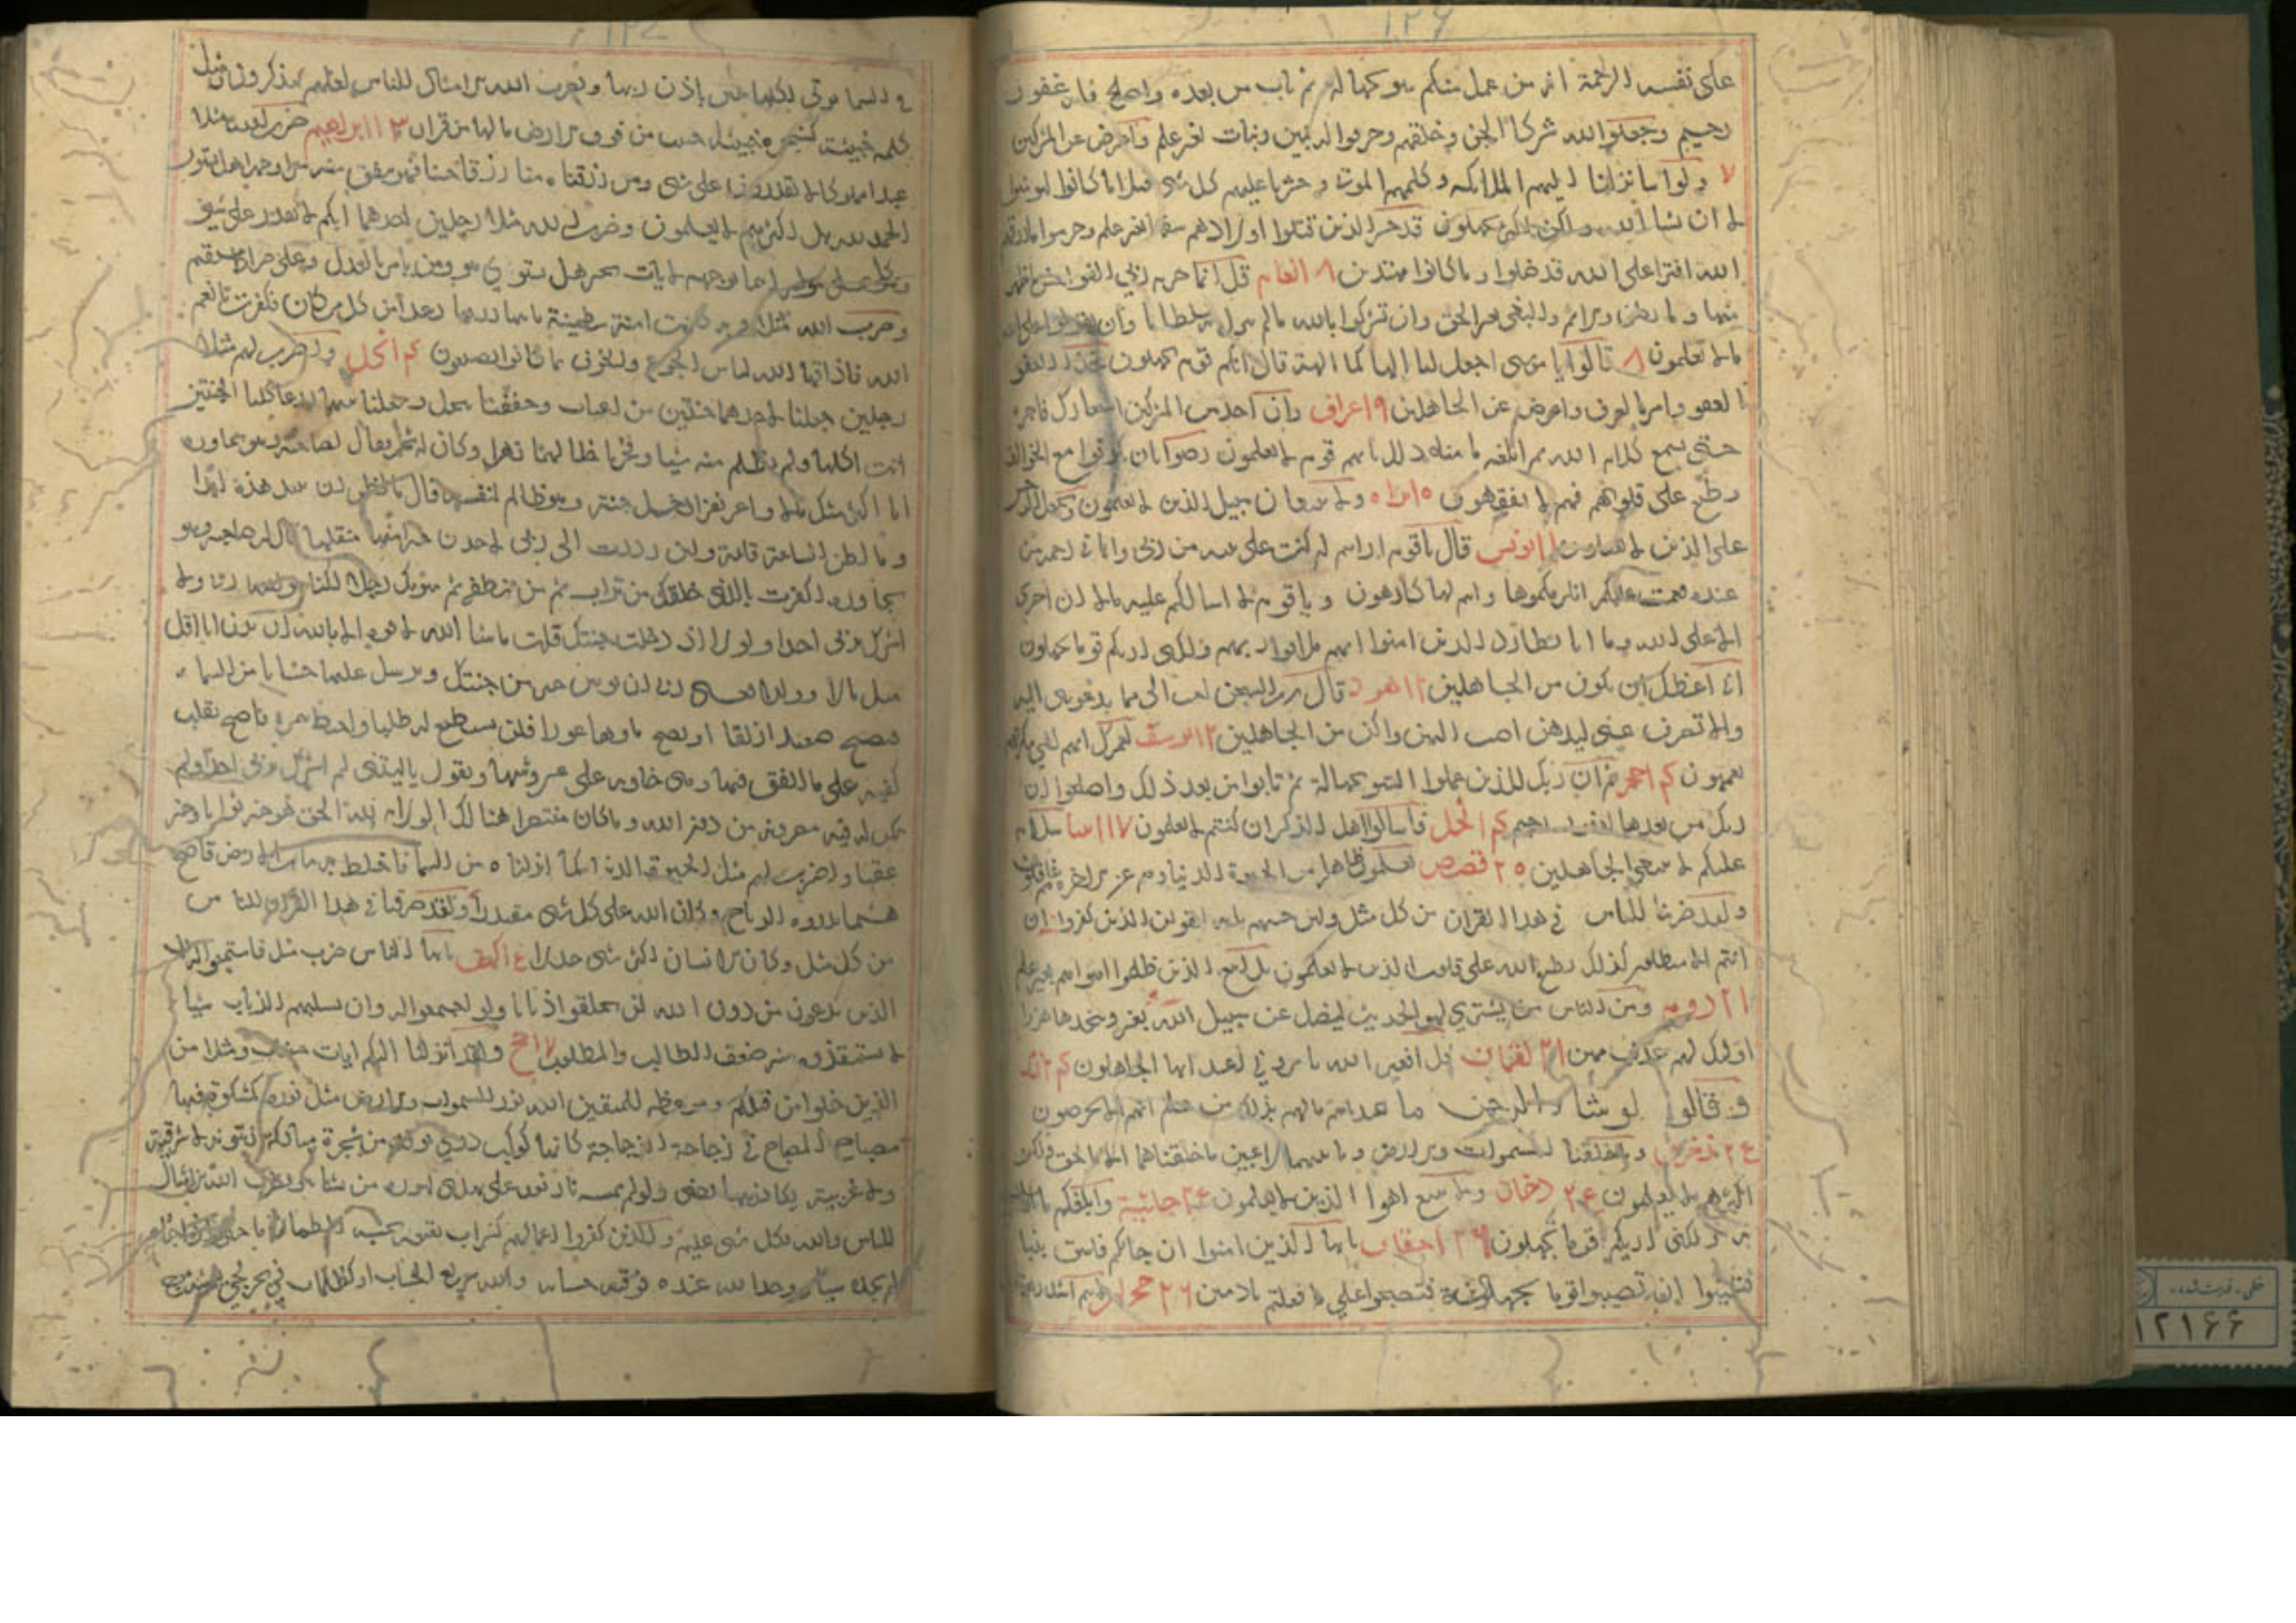 ١٢٦
على نفسه الرحمة انه من عمل منكم سوء بجهالة ثم تاب من بعده واصلح فانه غفور
رحيم وجعلوا لله شركا الجن وخلقهم وخرقوا له بنين وبنات بغير علم واعرض عن المشركين
٧ ولو اننا نزلنا اليهم الملائكه وكلمهم الموتى وحشرنا عليهم كل شى قبلا ما كانوا ليومنوا
الا ان يشا الله ولكن اكثرهم يجهلون قد خسر الذين قتلوا اولادهم سفها بغير علم وحرموا ما رزقهم
الله افترا على الله قد ضلوا وما كانوا مهتدين ٨ انعام قل انما حرم ربي الفواحش ما ظهر
منها وما بطن والاثم والبغى بغير الحق وان تشركوا بالله ما لم ينزل به سلطانا وان تقولوا على الله
مالا تعلمون ٨ قالوا يا موسى اجعل لنا الها كما لهم الهة قال انكم قوم تجهلون خذ العفو
العفو وامر بالعرف واعرض عن الجاهلين ٩ اعراف وان احد من المشركين استجارك فاجره
حتى يسمع كلام الله ثم ابلغه مامنه ذلك بانهم قوم لا يعلمون رضوا بان يكونوا مع الخوالف
وطبع على قلوبهم فهم لا يفقهون ولا تتبعان سبيل الذين لا يعلمون ويجعل الرجس
على الذين لا يعقلون ١١ يونس قال يا قوم ارايتم ان كنت على بينه من ربى واتانى رحمة من
عنده فعميت عليكم انلزمكموها وانتم لها كارهون ويا قوم لا اسالكم عليه مالا ان اجرى
الا على الله وما انا بطارد الذين امنوا انهم ملاقوا ربهم ولكنى اريكم قوما تجهلون
انى اعظك ان تكون من الجاهلين ١٢ هود قال رب السجن احب الى مما يدعوننى اليه
والا تصرف عنى كيدهن اصب اليهن واكن من الجاهلين ١٢ يوسف لعمرك انهم لفى سكرتهم
يعمهون حجر ثم ان ربك للذين عملوا السو بجهالة ثم تابوا من بعد ذلك واصلحوا ان
ربك من بعدها لغفور رحيم النحل فاسالوا اهل الذكر ان كنتم لا تعلمون ١٧ انبيا سلام
عليكم لا نبتغى الجاهلين ٢٥ قصص يعلمون ظاهرا من الحيوة الدنيا وهم عن الاخرة هم غافلون
ولقد ضربنا للناس في هذا القران من كل مثل ولئن جئتهم باية ليقولن الذين كفروا ان
انتم الا مبطلون كذلك يطبع الله على قلوب الذين لا يعلمون بل اتبع الذين ظلموا اهواءهم بغير علم
٢١ روم ومن الناس من يشترى لهو الحديث ليضل عن سبيل الله بغير ويتخذها هزوا
اولئك لهم عذاب مهين ٢١ لقمان قل افغير الله تامرونى اعبد ايها الجاهلون
وقالوا لو شا الرحمن ما عبدناهم مالهم بذلك من علم ان هم الا يخرصون
زخرف وما خلقنا السموات والارض وما بينهما لاعبين ما خلقناهما الا بالحق ولكن
اكثرهم لا يعلمون دخان ولا تتبع اهوا الذين لا يعلمون جاثية وابلغكم ما ارسلت
به ولكنى اريكم قوما تجهلون ٢٦ احقاف يا ايها الذين امنوا ان جاكم فاسق بنبا
فتبينوا ان تصيبوا قوما بجهالة فتصبحوا على ما فعلتم نادمين ٢٦
في السما توتى اكلها كل حين باذن ربها ويضرب الله الامثال للناس لعلهم يتذكرون ومثل
كلمه خبيثة كشجرة خبيثة اجتثت من فوق الارض مالها من قرار ١٣ ابراهيم ضرب الله مثلا
عبدا مملوكا لا يقدر على شى ومن رزقناه منا رزقا حسنا فهو ينفق منه سرا وجهرا هل يستوون
الحمد لله بل اكثرهم لا يعلمون وضرب الله مثلا رجلين احدهما ابكم لا يقدر على شى
وهو كل على موليه اينما يوجهه لا يات بخير هل يستوى هو ومن يامر بالعدل وهو على صراط مستقيم
وضرب الله مثلا قرية كانت امنة مطمئنة ياتيها رزقها رغدا من كل مكان فكفرت بانعم
الله فاذاقها الله لباس الجوع والخوف بما كانوا يصنعون النحل واضرب لهم مثلا
رجلين جعلنا لاحدهما جنتين من اعناب وحففنا بنخل وجعلنا بينهما زرعا كلتا الجنتين
اتت اكلها ولم تظلم منه شيا وفجرنا خلالهما نهرا وكان له ثمر فقال لصاحبه وهو يحاوره
انا اكثر منك مالا واعز نفرا ودخل جنته وهو ظالم لنفسه قال ما اظن ان تبيد هذه ابدا
وما اظن الساعة قائمة ولئن رددت الى ربى لاجدن خيرا منها منقلبا قال له صاحبه وهو
يحاوره اكفرت بالذى خلقك من تراب ثم من نطفة ثم سويك رجلا لكنا هو الله ربى ولا
اشرك بربى احدا ولولا اذ دخلت جنتك قلت ما شا الله لا قوة الا بالله ان ترن انا اقل
منك مالا وولدا فعسى ربى ان يوتين خيرا من جنتك ويرسل عليها حسبانا من السماء
فتصبح صعيدا زلقا او يصبح ماوها غورا فلن تستطيع له طلبا واحيط بثمره فاصبح يقلب
كفيه على ما انفق فيها وهى خاويه على عروشها ويقول يا ليتنى لم اشرك بربى احدا ولم
تكن له فئة ينصرونه من دون الله وما كان منتصرا هنالك الولاية لله الحق هو خير ثوابا وخير
عقبا واضرب لهم مثل الحيوة الدنيا كما انزلناه من السما فاختلط به نبات الارض فاصبح
هشيما تذروه الرياح وكان الله على كل شى مقتدرا ولقد صرفنا في هذا القران للناس
من كل مثل وكان الانسان اكثر شى جدلا الكهف يا ايها الناس ضرب مثل فاستمعوا له
الذين تدعون من دون الله لن يخلقوا ذبابا ولو اجتمعوا له وان يسلبهم الذباب شيا
لا يستنقذوه منه ضعف الطالب والمطلوب ١٧ حج ولقد انزلنا اليكم ايات مبينات ومثلا من
الذين خلوا من قبلكم وموعظه للمتقين الله نور السموات والارض مثل نوره كمشكوة فيها
مصباح المصباح في زجاجة الزجاجة كانها كوكب درى يوقد من شجرة مباركة زيتونة لا شرقية
ولا غربية يكاد زيتها يضى ولو لم تمسسه نار نور على نور يهدى الله لنوره من يشا ويضرب الله الامثال
للناس والله بكل شى عليم والذين كفروا اعمالهم كسراب بقيعة يحسبه الظمان ما حتى اذا جاءه
لم يجده شيا ووجد الله عنده فوفيه حسابه والله سريع الحساب او كظلمات في بحر لجى
١٢١٦۶